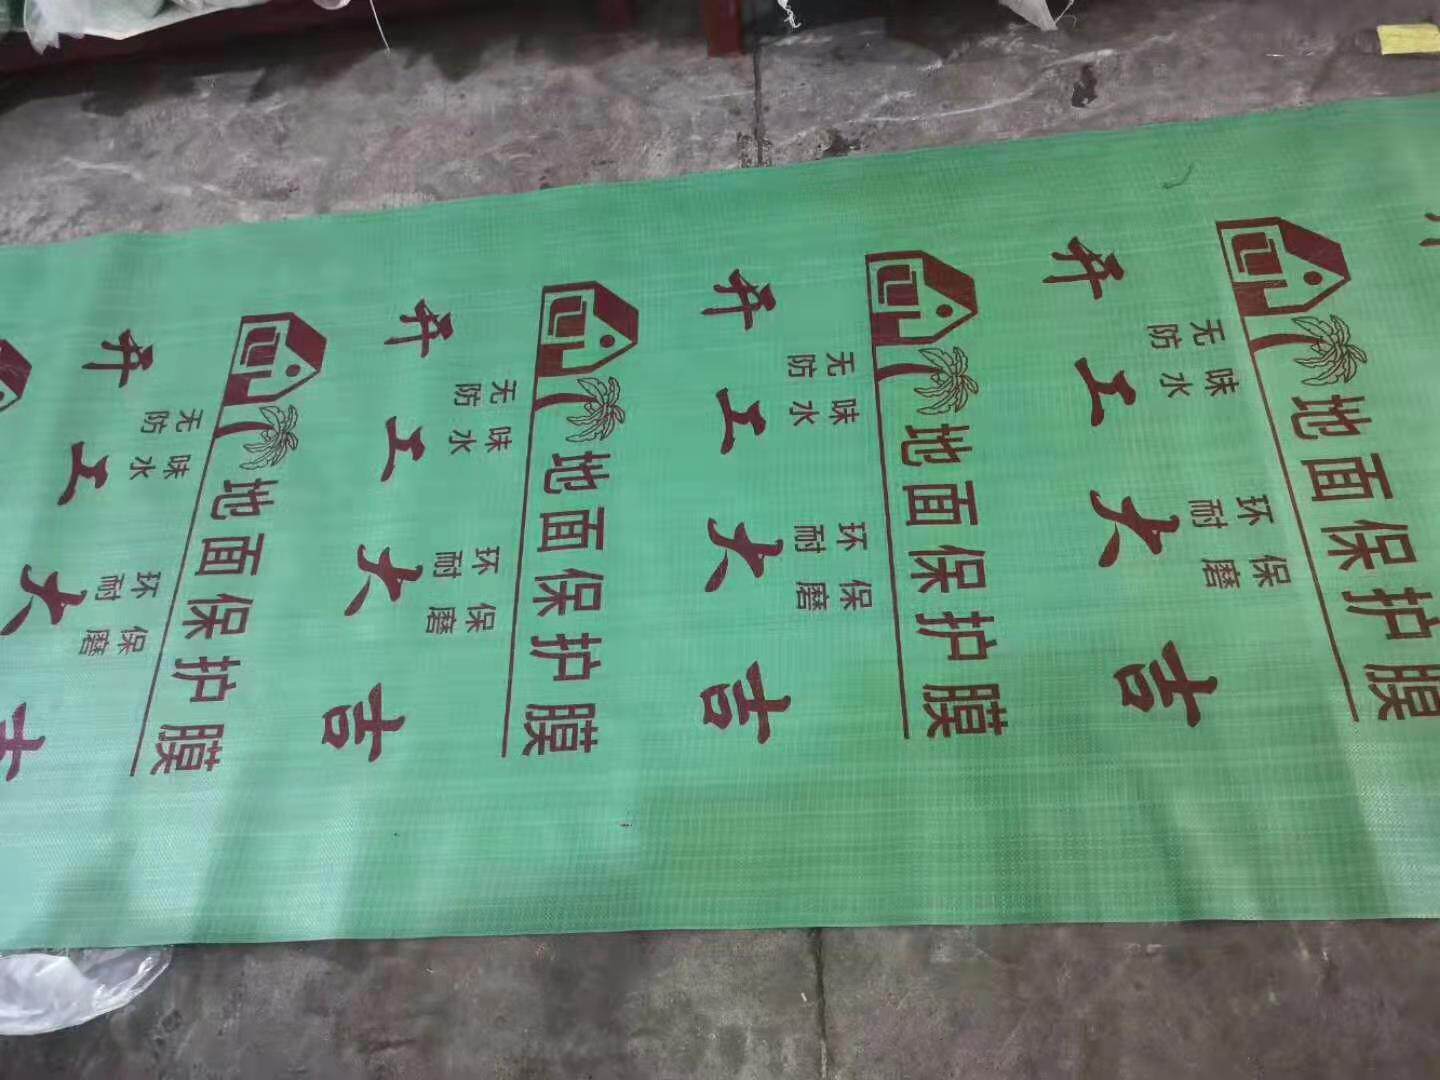 地面保护膜
无味 环保
防水 耐磨
开工大吉
地面保护膜
无味 环保
防水 耐磨
开工大吉
地面保护膜
无味 环保
防水 耐磨
开工大吉
地面保护膜
无味 环保
防水 耐磨
开工大吉